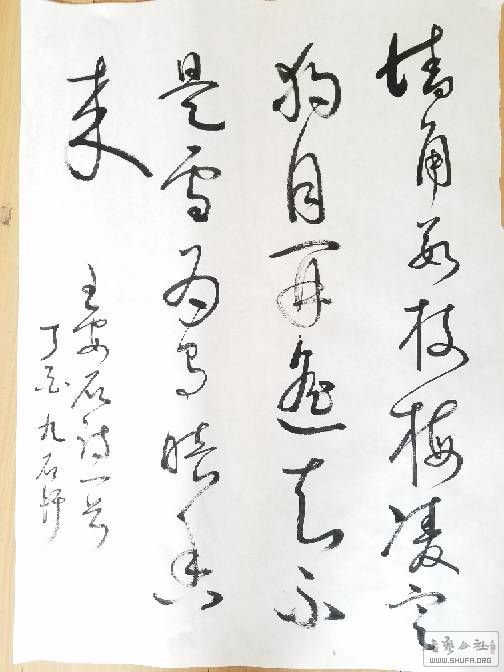 墙角数枝梅凌寒
独自开遥知不
是雪为有暗香
来
王安石诗一首
丁酉九石轩
书艺公社
WWW.SHUFA.ORG